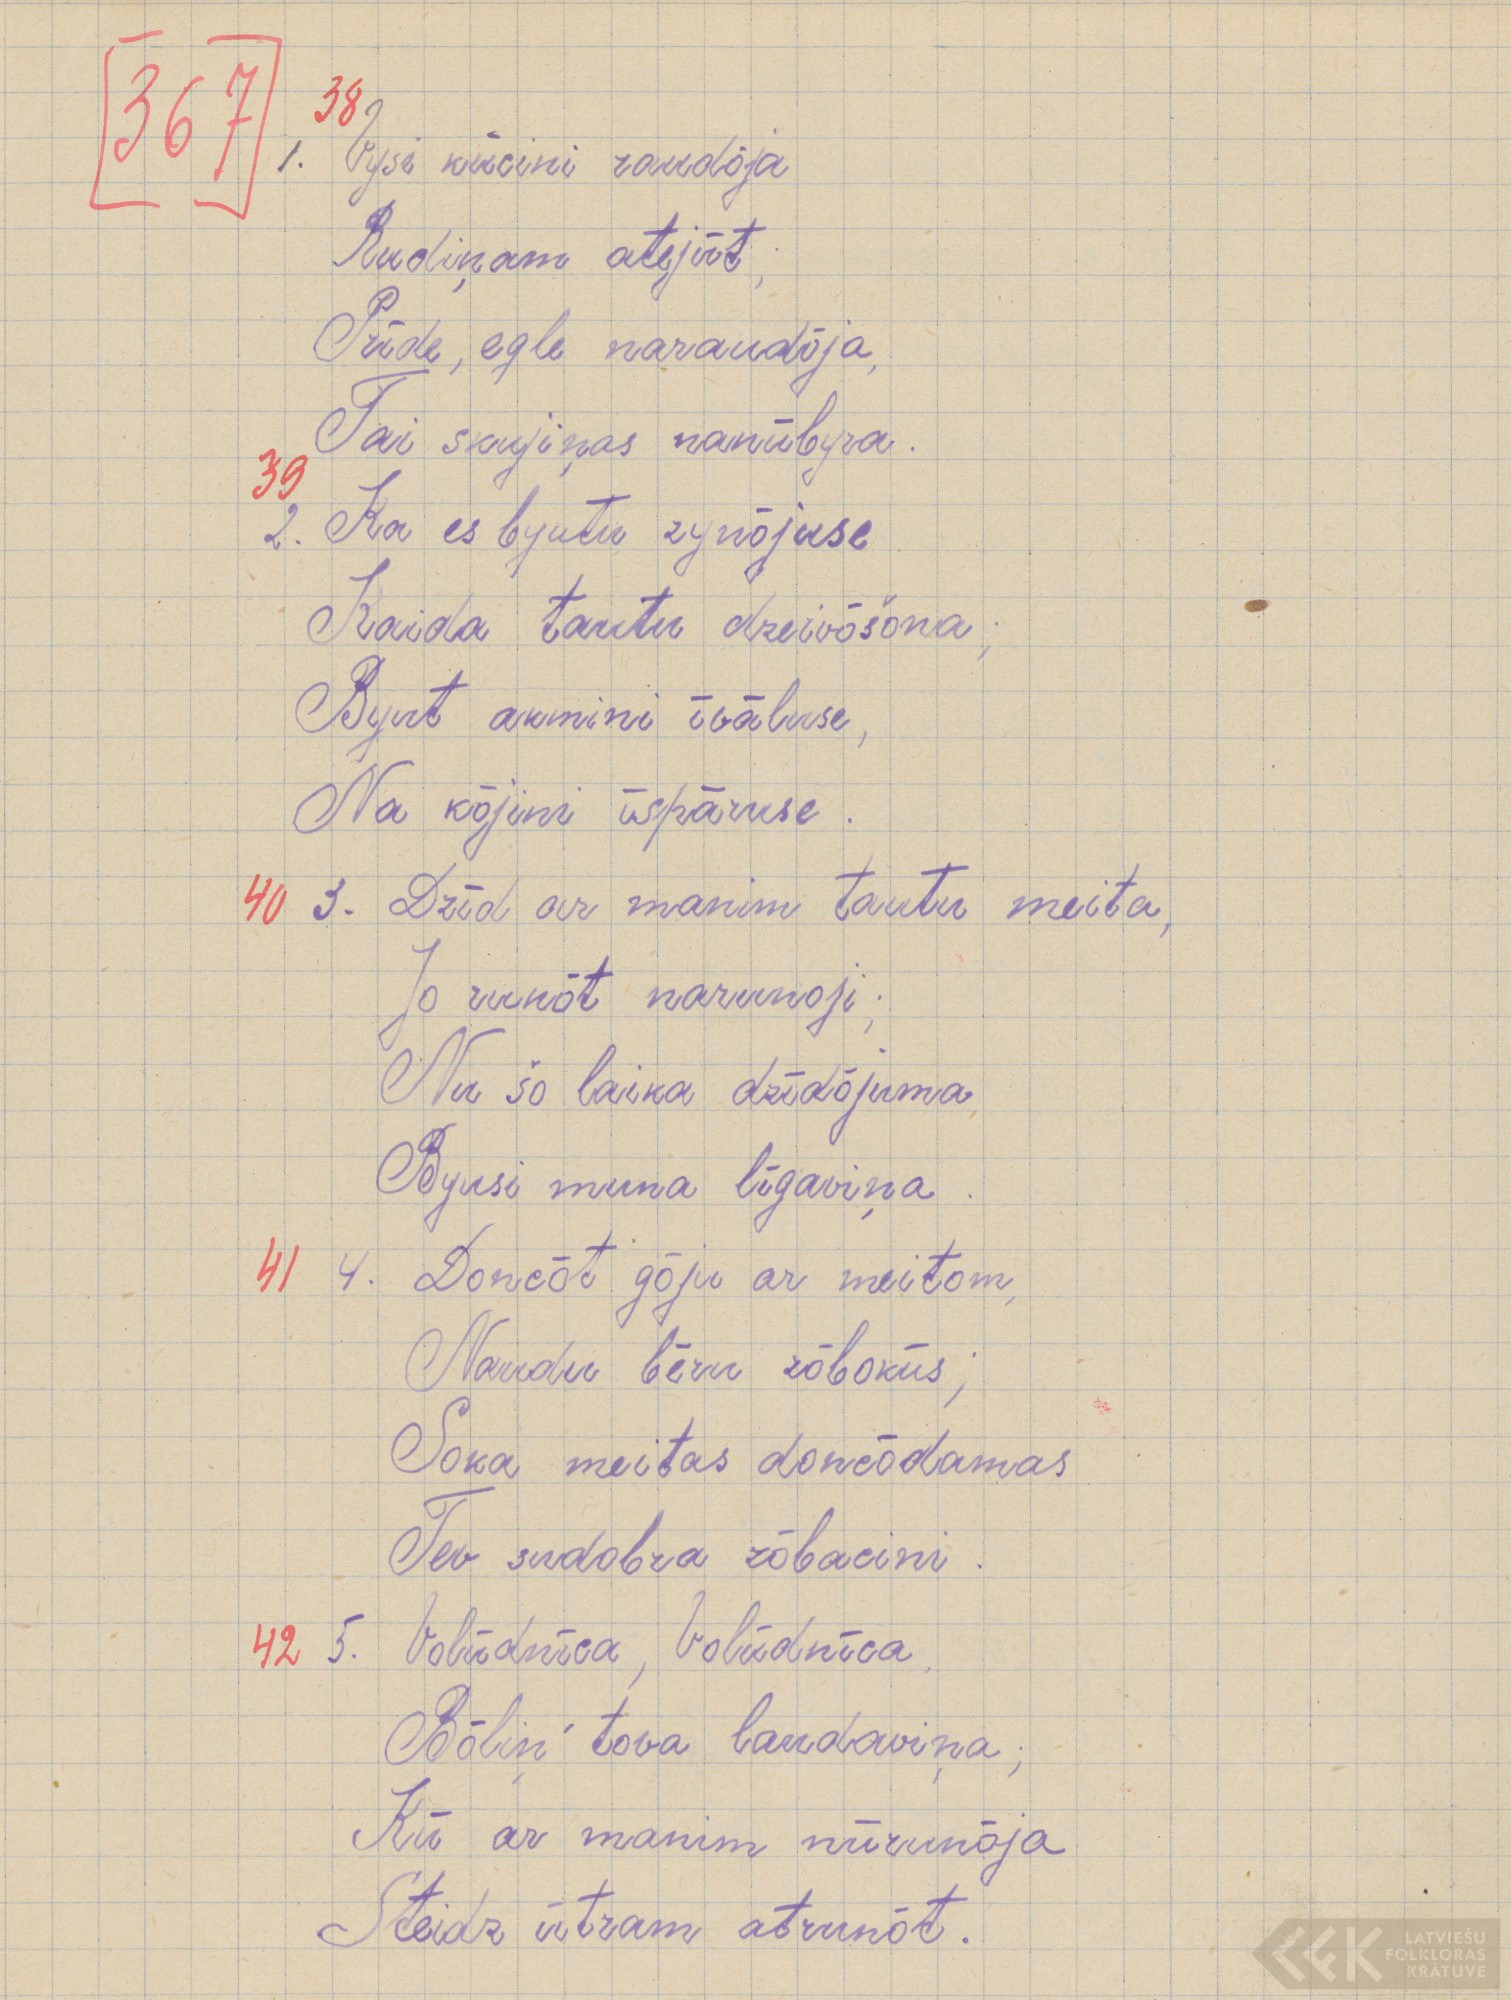 367
38
1. Vysi kūcini raudōja
Rudiņam atejūt;
Prīde, egle naraudōja,
Tai skujiņas nanūbyra.
39
2. Ka es byutu zynōjuse
Kaida tautu dzeivōšona;
Byut akmini īvāluse,
Na kōjini īspāruse.
40 3. Dzīd ar manim tautu meita,
Jo runōt narunoji;
Nu šo laika dzīdōjuma
Byusi muna līgaviņa.
41 4. Doncōt gōju ar meitom,
Naudu bēru zōbokūs;
Soka meitas doncōdamas
Tev sudobra zōbacini.
42 5. Volūdnīca, Volūdnīca,
Bōliņ' tova laudaviņa;
Kū ar manim nūrunōja
Steidz ūtram atrunōt.
LATVIEŠU
FOLKLORAS
KRĀTUVE